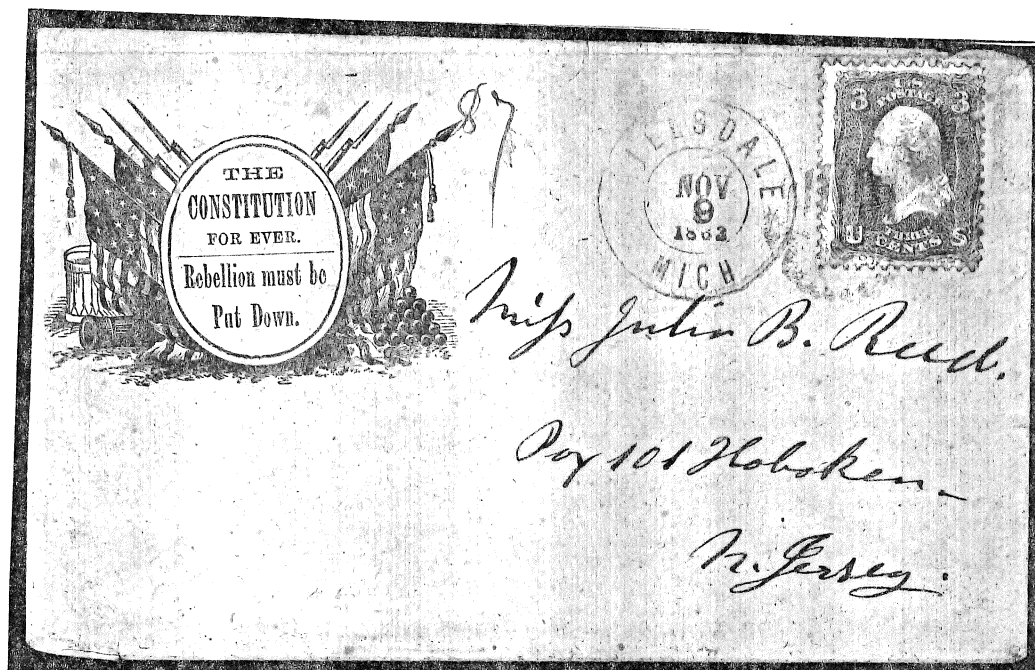 THE
CONSTITUTION
FOR EVER.
Rebellion must be
Put Down.
87
ILLSDALE
NOV
9
MICH
3 U.S. 3
POSTAGE
U THREE S
CENTS
Miss Julia B. Reed.
Box 101 Hoboken
N. Jersey.